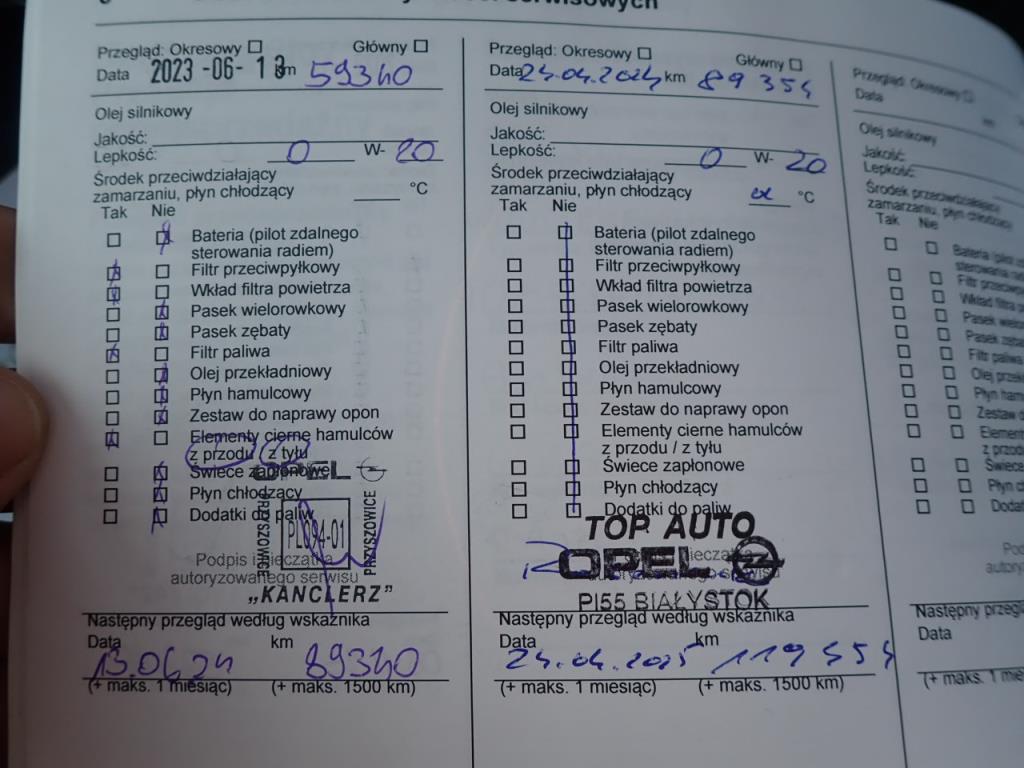 serwisowych
Przegląd: Okresowy Główny
Data 2023-06-13 km 59340
Olej silnikowy
Jakość:
Lepkość: 0 W- 20
Środek przeciwdziałający
zamarzaniu, płyn chłodzący °C
Tak Nie
Bateria (pilot zdalnego
sterowania radiem)
Filtr przeciwpyłkowy
Wkład filtra powietrza
Pasek wielorowkowy
Pasek zębaty
Filtr paliwa
Olej przekładniowy
Płyn hamulcowy
Zestaw do naprawy opon
Elementy cierne hamulców
z przodu / z tyłu
Świece zapłonowe
OPEL
Płyn chłodzący
Dodatki do paliw
PRZYSZOWICE PL094-01 PRZYSZOWICE
Podpis i pieczątka
autoryzowanego serwisu
„KANCLERZ”
Następny przegląd według wskaźnika
Data km
13.06.24 89340
(+ maks. 1 miesiąc) (+ maks. 1500 km)
Przegląd: Okresowy Główny
Data 24.04.2024 km 89 354
Olej silnikowy
Jakość:
Lepkość: 0 W- 20
Środek przeciwdziałający
zamarzaniu, płyn chłodzący °C
Tak Nie
Bateria (pilot zdalnego
sterowania radiem)
Filtr przeciwpyłkowy
Wkład filtra powietrza
Pasek wielorowkowy
Pasek zębaty
Filtr paliwa
Olej przekładniowy
Płyn hamulcowy
Zestaw do naprawy opon
Elementy cierne hamulców
z przodu / z tyłu
Świece zapłonowe
Płyn chłodzący
Dodatki do paliw
TOP AUTO
OPEL
pieczątka
serwisu
P155 BIAŁYSTOK
Następny przegląd według wskaźnika
Data km
24.04.2025 119 454
(+ maks. 1 miesiąc) (+ maks. 1500 km)
Przegląd: Okresowy
Data
Olej silnikowy
Jakość:
Lepkość:
Środek przeciwdziałający
zamarzaniu, płyn chłodzący
Tak Nie
Bateria (pilot
sterowania
Filtr
Wkład
Pasek
Pasek
Filtr paliwa
Olej
Płyn
Zestaw d
Elementy
z przodu
Świece
Płyn ch
Następny
Data
(+ maks. 1